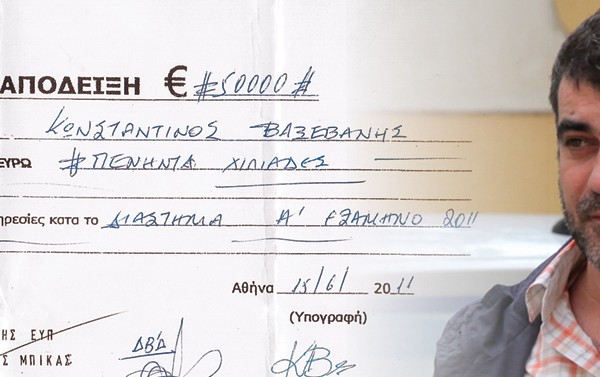 ΑΠΟΔΕΙΞΗ € #50000#
ΚΩΝΣΤΑΝΤΙΝΟΣ ΒΑΞΕΒΑΝΗΣ
ΕΥΡΩ #ΠΕΝΗΝΤΑ ΧΙΛΙΑΔΕΣ
ηρεσίες κατα το ΔΙΑΣΤΗΜΑ Α' ΕΞΑΜΗΝΟ 2011
Αθήνα 15/6/ 2011
(Υπογραφή)
ΗΣ ΕΥΠ
Σ ΜΠΙΚΑΣ
ΔΒΔ